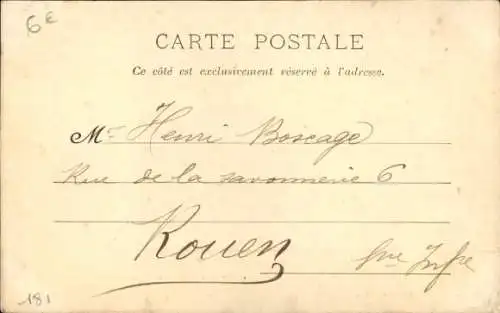 6€
CARTE POSTALE
Ce côté est exclusivement réservé à l'adresse.
Mr Henri Boscage
Rue de la savonnerie 6
Rouen
Sne Infre
181